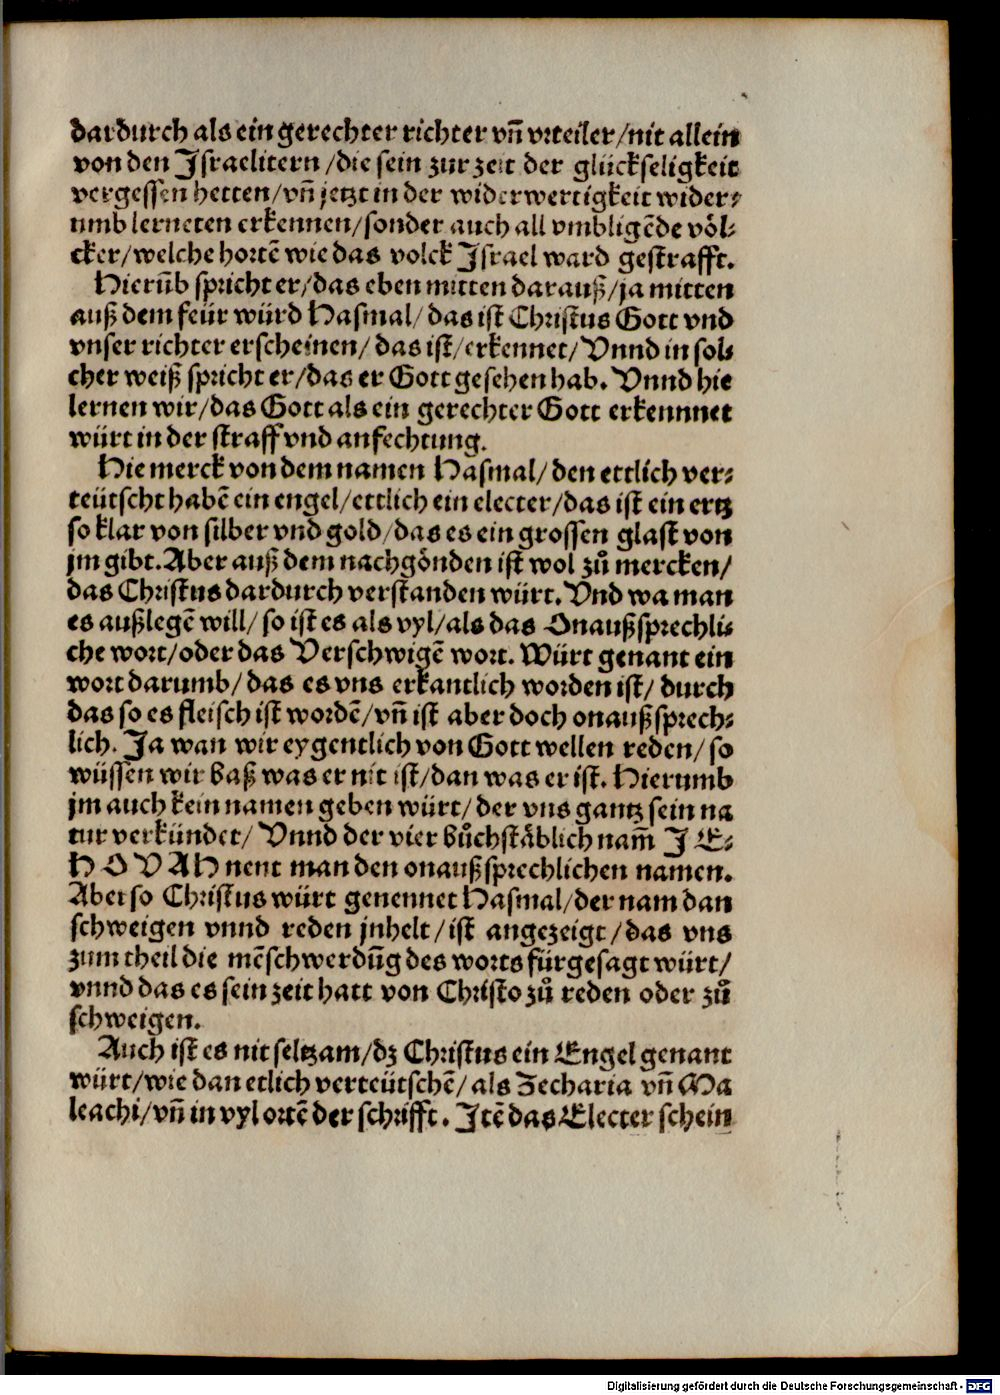 dardurch als ein gerechter richter vñ vrteiler/nit allein
von den Israelitern /die sein zur zeit der glückseligkeit
vergessen hetten/vñ jetzt in der widerwertigkeit wider⸗
umb lerneten erkennen/sonder auch all vmbligēde völ⸗
cker/welche hortē wie das volck Israel ward gestrafft.
Hierūb spricht er/das eben mitten darauß/ja mitten
auß dem feür würd Hasmal/das ist Christus Gott vnd
vnser richter erscheinen/das ist/erkennet/Vnnd in sol⸗
cher weiß spricht er/das er Gott gesehen hab. Vnnd hie
lernen wir/das Gott als ein gerechter Gott erkennnet
würt in der straff vnd anfechtung.
Hie merck von dem namen Hasmal/den ettlich ver⸗
teütscht habē ein engel/ettlich ein electer/das ist ein ertz
so klar von silber vnd gold/das es ein grossen glast von
jm gibt. Aber auß dem nachgönden ist wol zů mercken/
das Christus dardurch verstanden würt. Vnd wa man
es außlegē will/so ist es als vyl/als das Onaußsprechli⸗
che wort/oder das Verschwigē wort. Würt genant ein
wort darumb/das es vns erkantlich worden ist/durch
das so es fleisch ist wordē/vñ ist aber doch onaußsprech⸗
lich. Ja wan wir eygentlich von Gott wellen reden/so
wüssen wir baß was er nit ist/dan was er ist. Hierumb
jm auch kein namen geben würt/der vns gantz sein na
tur verkündet/Vnnd der vier bůchstäblich nam̃ I E⸗
H O V A H nent man den onaußsprechlichen namen.
Aber so Christus würt genennet Hasmal/der nam dan
schweigen vnnd reden jnhelt/ist angezeigt/das vns
zum theil die mēschwerdūg des worts fürgesagt würt/
vnnd das es sein zeit hatt von Christo zů reden oder zů
schweigen.
Auch ist es nit seltzam/dz Christus ein Engel genant
würt/wie dan etlich verteütschē/als Zecharia vñ Ma
leachi/vñ in vyl ortē der schrifft. Itē das Electer schein
Digitalisierung gefördert durch die Deutsche Forschungsgemeinschaft - DFG